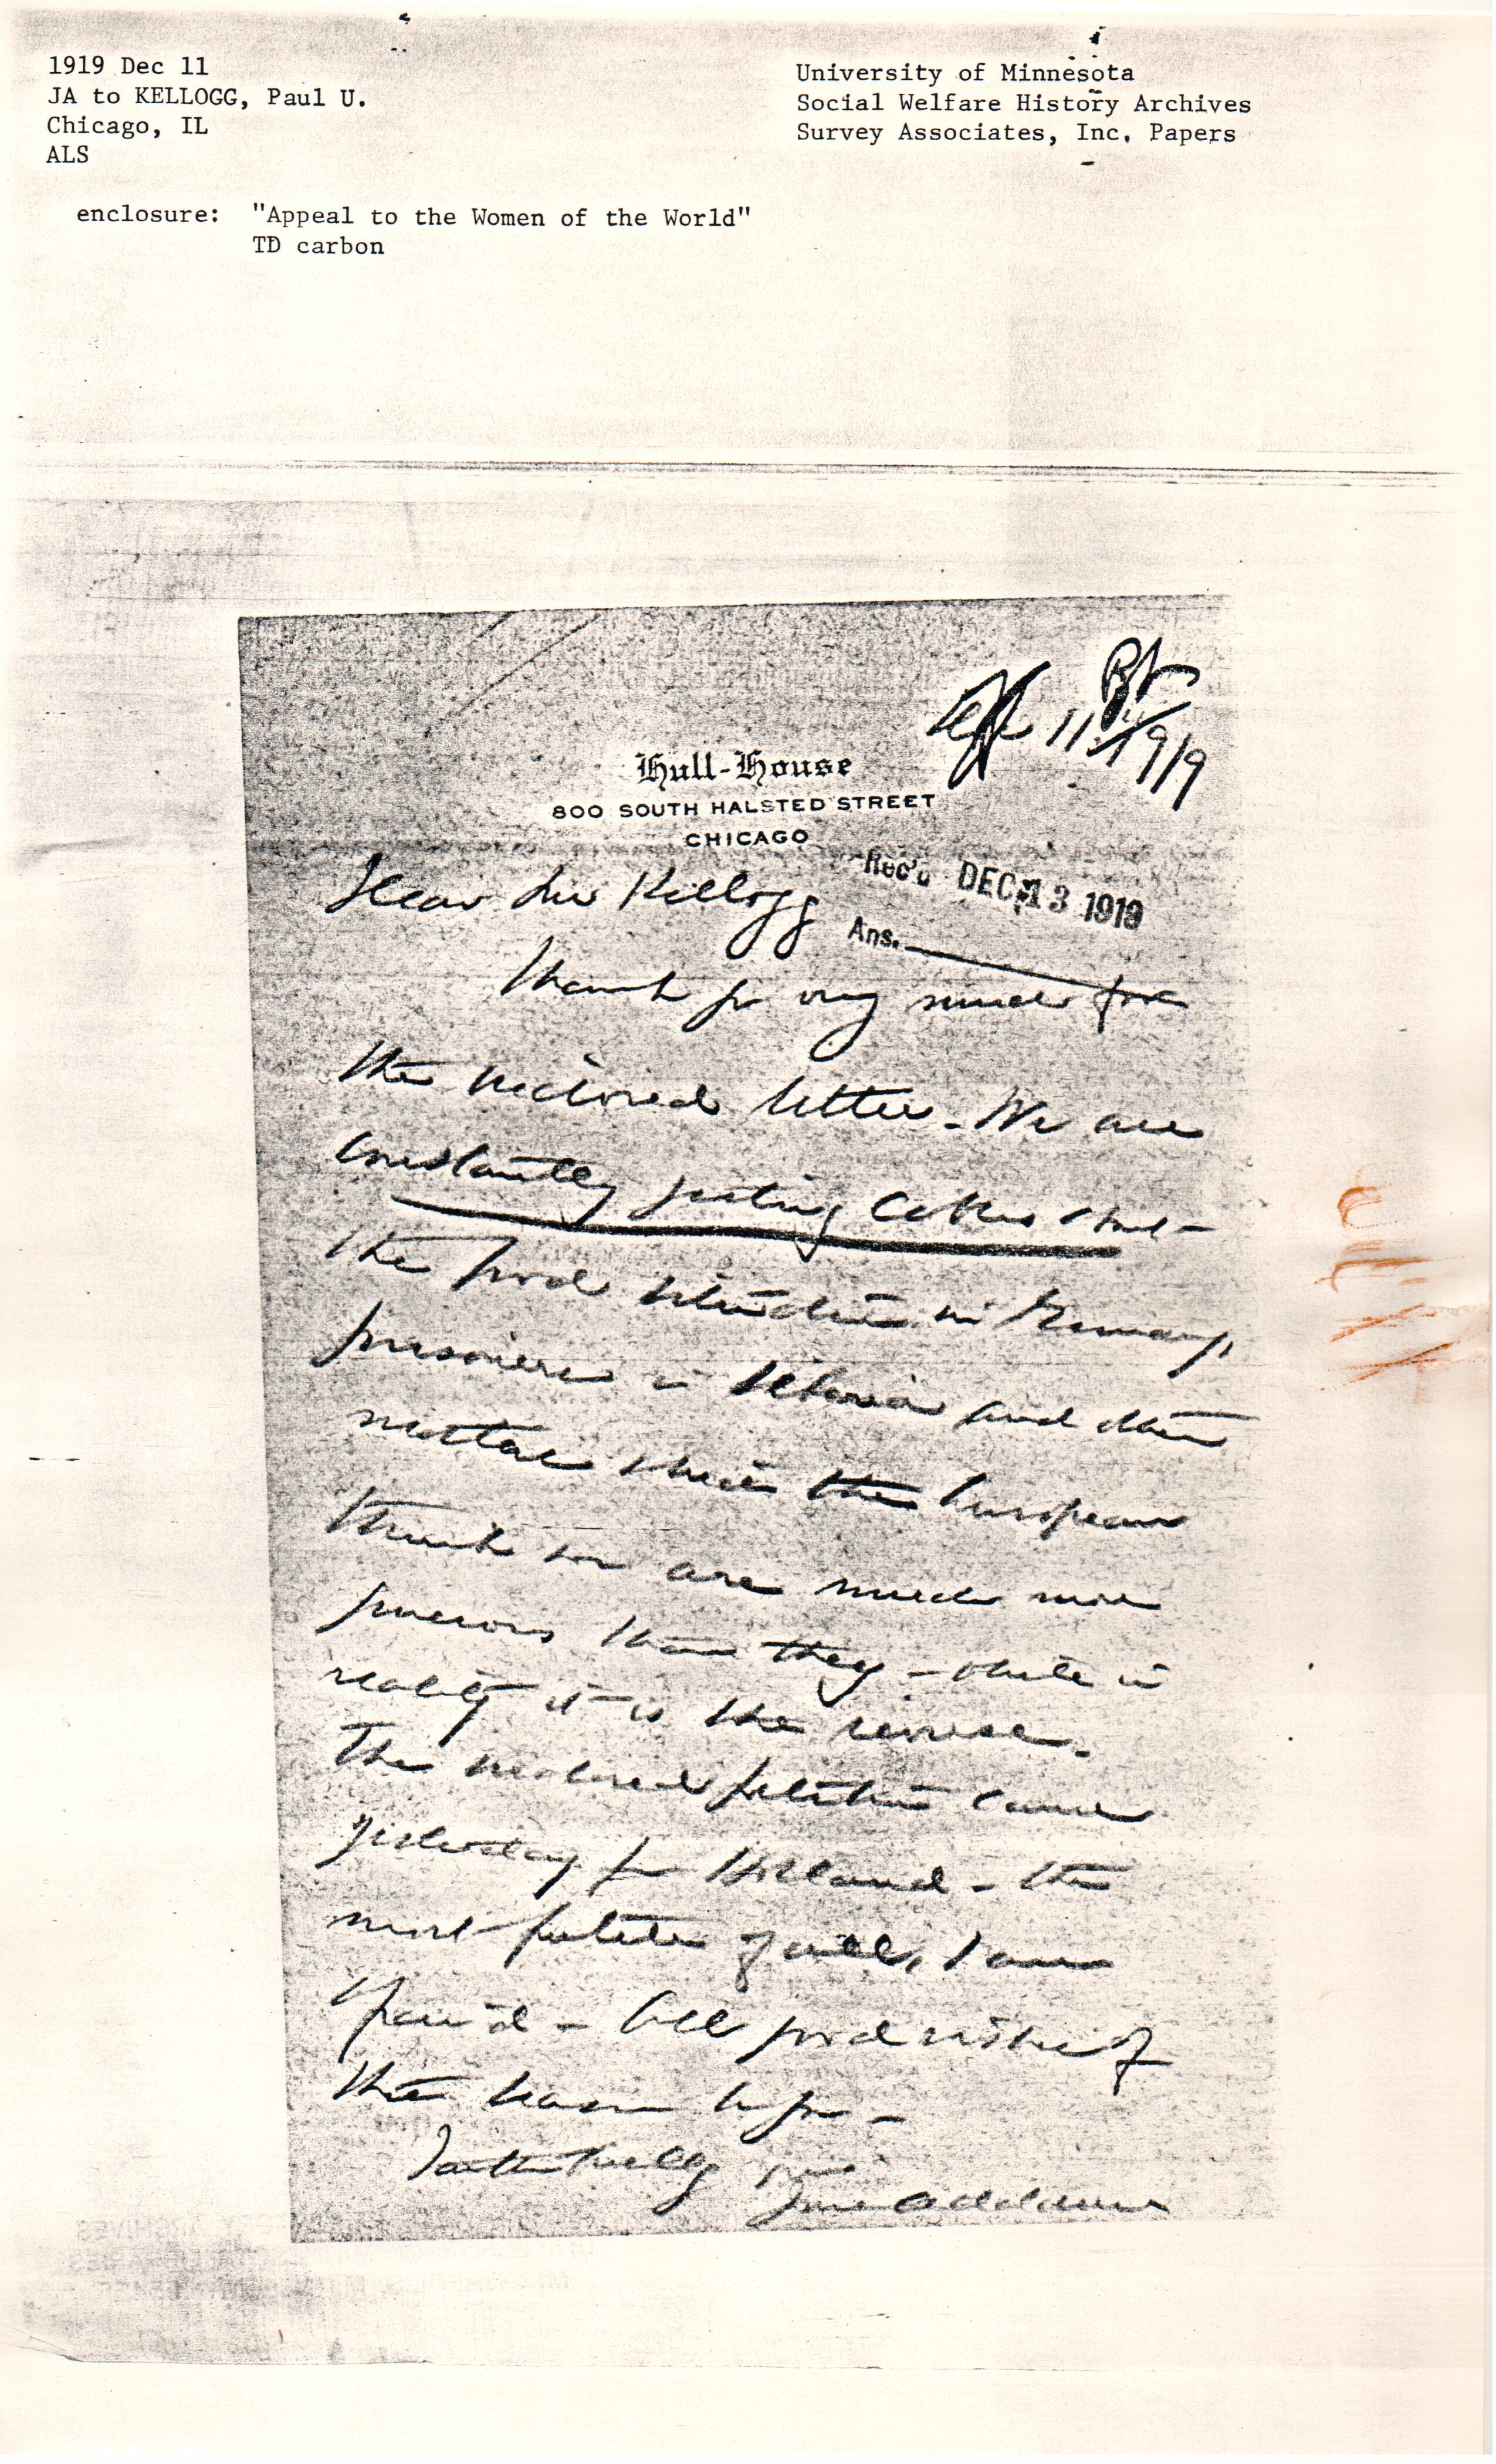 1919 Dec 11
JA to KELLOGG, Paul U.
Chicago, IL
ALS
University of Minnesota
Social Welfare History Archives
Survey Associates, Inc. Papers
enclosure: "Appeal to the Women of the World"
TD carbon
11 1919
Hull-House
800 SOUTH HALSTED STREET
CHICAGO
Rec'd DEC 13 1919
Ans.
Dear Mr Kellogg
Thank you very much for
the inclosed letter. We are
constantly getting letters about
the food situation in Germany,
prisoners in Siberia and other
matters which the European
think we are much more
generous than they - while in
reality it is the reverse.
The inclosed petition came
yesterday from Holland - the
most of all, I am
afraid - All good wishes of
the season to you -
Faithfully yrs
Jane Addams